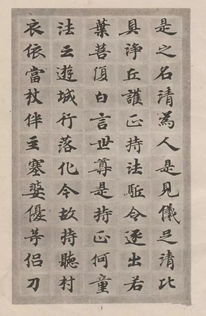 是之名清為人是見儀是清比
具淨丘護正持法駈令逐出若
葉菩須白言世尊是持正何童
法云遊城行落化令故持聽村
衣依富杖伴主塞婆優等侶刀